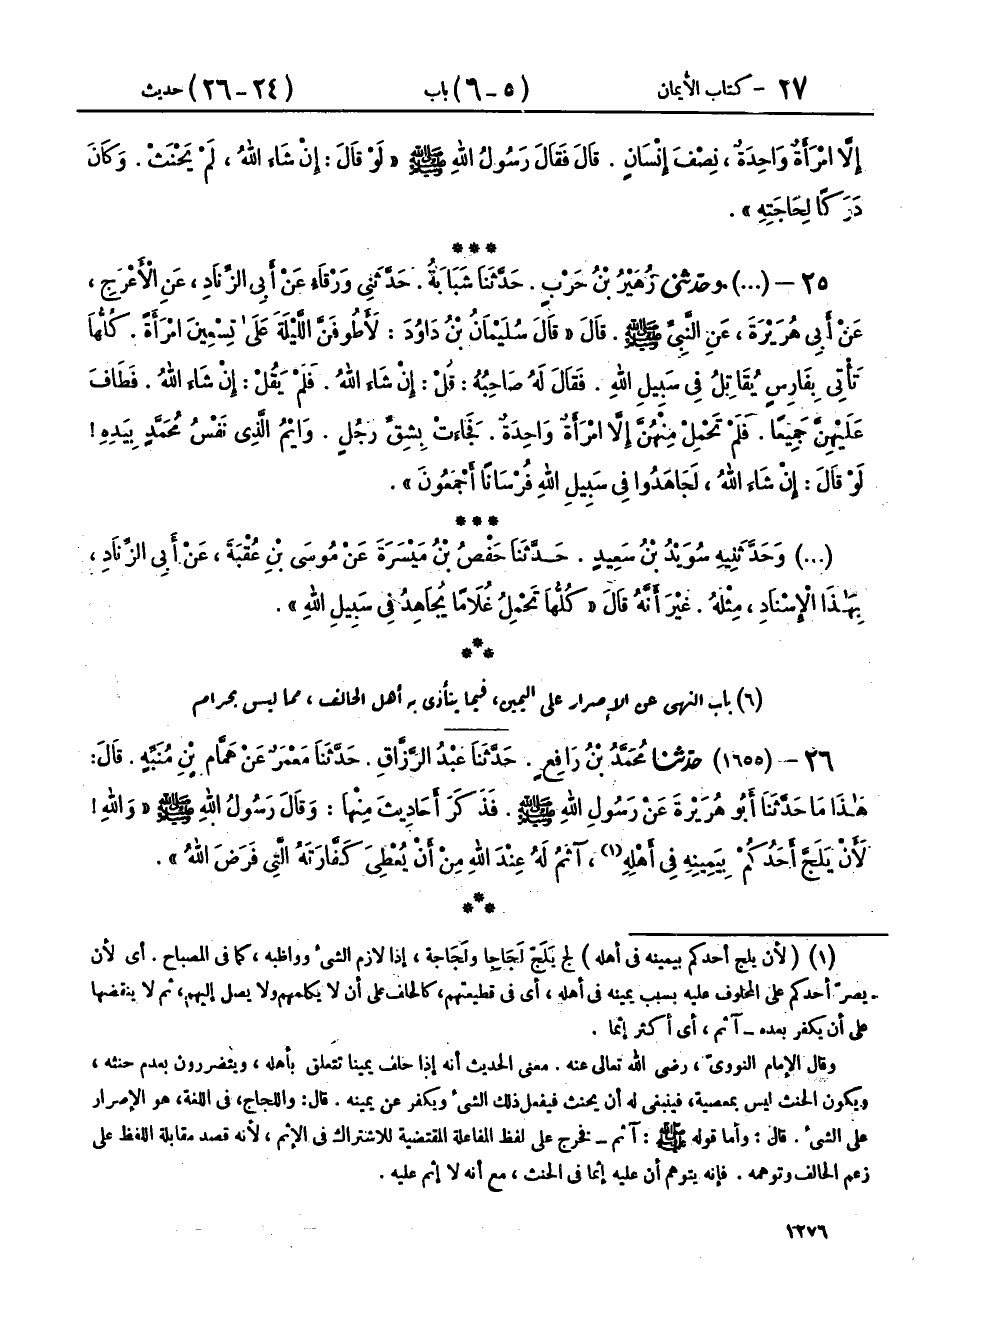 ٢٧ - كتاب الأيمان (٥ - ٦) باب (٢٤ - ٢٦) حديث
إِلَّا امْرَأَةٌ وَاحِدَةٌ ، نِصْفَ إِنْسَانٍ . قَالَ فَقَالَ رَسُولُ اللهِ ﷺ « لَوْ قَالَ : إِنْ شَاءَ اللهُ ، لَمْ يَحْنَثْ . وَكَانَ
دَرَكًا لِحَاجَتِهِ » .
***
٢٥ - (...) وحدثنى زُهَيْرُ بْنُ حَرْبٍ . حَدَّثَنَا شَبَابَةُ . حَدَّثَنِي وَرْقَاءُ عَنْ أَبِي الزِّنَادِ ، عَنِ الْأَعْرَجِ ،
عَنْ أَبِي هُرَيْرَةَ ، عَنِ النَّبِيِّ ﷺ . قَالَ « قَالَ سُلَيْمَانُ بْنُ دَاوُدَ : لَأَطُوفَنَّ اللَّيْلَةَ عَلَى تِسْعِينَ امْرَأَةً . كُلُّهَا
تَأْتِي بِفَارِسٍ يُقَاتِلُ فِي سَبِيلِ اللهِ . فَقَالَ لَهُ صَاحِبُهُ : قُلْ : إِنْ شَاءَ اللهُ . فَلَمْ يَقُلْ : إِنْ شَاءَ اللهُ . فَطَافَ
عَلَيْهِنَّ جَمِيعًا . فَلَمْ تَحْمِلْ مِنْهُنَّ إِلَّا امْرَأَةٌ وَاحِدَةٌ . فَجَاءَتْ بِشِقِّ رَجُلٍ . وَايْمُ الَّذِي نَفْسُ مُحَمَّدٍ بِيَدِهِ !
لَوْ قَالَ : إِنْ شَاءَ اللهُ ، لَجَاهَدُوا فِي سَبِيلِ اللهِ فُرْسَانًا أَجْمَعُونَ » .
***
(...) وَحَدَّثَنِيهِ سُوَيْدُ بْنُ سَعِيدٍ . حَدَّثَنَا حَفْصُ بْنُ مَيْسَرَةَ عَنْ مُوسَى بْنِ عُقْبَةَ ، عَنْ أَبِي الزِّنَادِ ،
بِهَٰذَا الْإِسْنَادِ ، مِثْلَهُ . غَيْرَ أَنَّهُ قَالَ « كُلُّهَا تَحْمِلُ غُلَامًا يُجَاهِدُ فِي سَبِيلِ اللهِ » .
***
(٦) باب النهى عن الإصرار على اليمين، فيما يتأذى به أهل الحالف ، مما ليس بحرام
٢٦ - (١٦٥٥) حدثنا مُحَمَّدُ بْنُ رَافِعٍ . حَدَّثَنَا عَبْدُ الرَّزَّاقِ . حَدَّثَنَا مَعْمَرٌ عَنْ هَمَّامِ بْنِ مُنَبِّهٍ . قَالَ :
هَٰذَا مَا حَدَّثَنَا أَبُو هُرَيْرَةَ عَنْ رَسُولِ اللهِ ﷺ . فَذَكَرَ أَحَادِيثَ مِنْهَا : وَقَالَ رَسُولُ اللهِ ﷺ « وَاللهِ !
لَأَنْ يَلَجَّ أَحَدُكُمْ بِيَمِينِهِ فِي أَهْلِهِ(١) ، آثَمُ لَهُ عِنْدَ اللهِ مِنْ أَنْ يُعْطِيَ كَفَّارَتَهُ الَّتِي فَرَضَ اللهُ » .
***
(١) ( لأن يلج أحدكم بيمينه فى أهله ) لج يَلَجّ لَجَاجا ولَجَاجة ، إذا لازم الشىء وواظبه ، كما فى المصباح . أى لأن
يصرّ أحدكم على المحلوف عليه بسبب يمينه فى أهله ، أى فى قطيعتهم، كالحلف على أن لا يكلمهم ولا يصل إليهم، ثم لا ينقضها
على أن يكفر بعده ــ آثم ، أى أكثر إثما .
وقال الإمام النووىّ ، رضى الله تعالى عنه . معنى الحديث أنه إذا حلف يمينا تتعلق بأهله ، ويتضررون بعدم حنثه ،
ويكون الحنث ليس بمعصية، فينبغى له أن يحنث فيفعل ذلك الشىء ويكفر عن يمينه . قال: واللجاج، فى اللغة، هو الإصرار
على الشىء . قال : وأما قوله ﷺ : آثم ــ فخرج على لفظ المفاعلة المقتضية للاشتراك فى الإثم ، لأنه قصد مقابلة اللفظ على
زعم الحالف وتوهمه . فإنه يتوهم أن عليه إثما فى الحنث ، مع أنه لا إثم عليه .
١٢٧٦